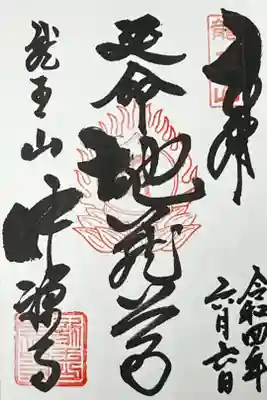 奉拝
令和四年
六月六日
延命
地蔵尊
龍王山
中 寺
龍王山